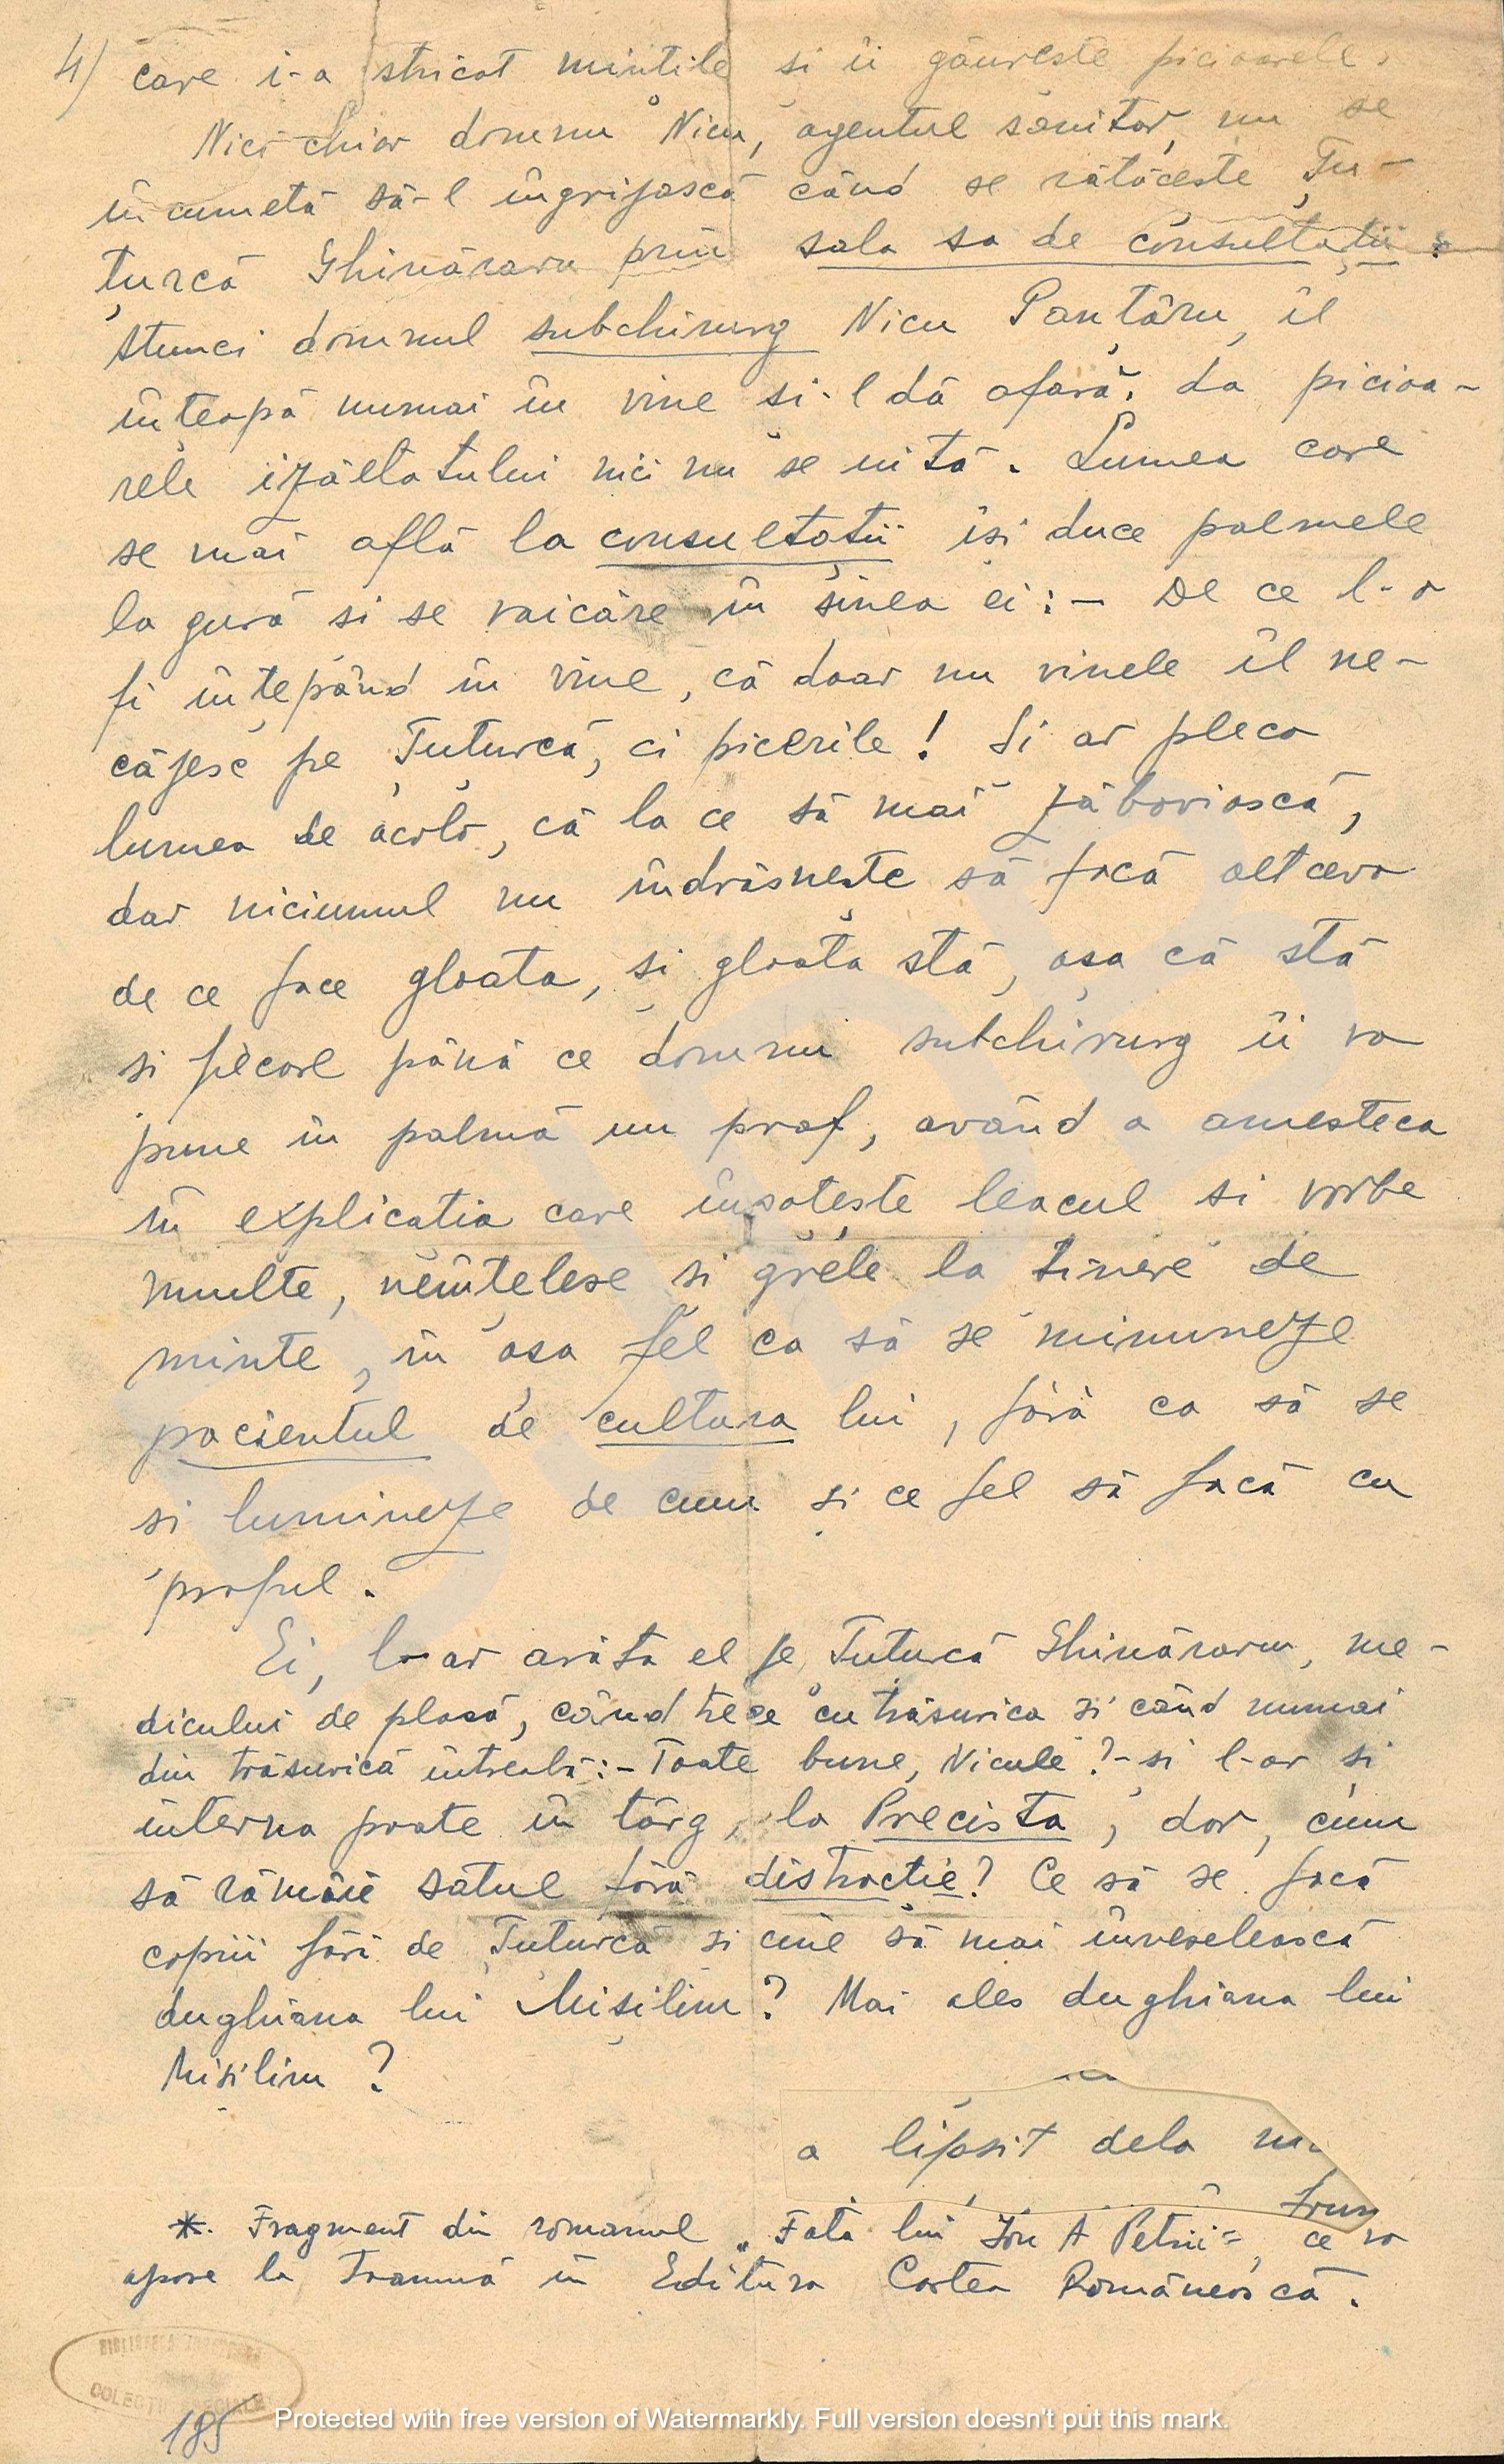 4) care i-a stricat mințile și îi găurește picioarele.
Nici chiar domnu Nicu, agentul sanitar, nu se
încumetă să-l îngrijască când se rătăcește Țu-
țurcă Ghinăraru prin sala sa de consultații.
Atunci domnul subchirurg Nicu Panțâru, îl
înțeapă numai în vine și-l dă afară. La picioa-
rele izăltatului nici nu se uită. Lumea care
se mai află la consultații își duce palmele
la gură și se vaicăre în sinea ei: – De ce l-o
fi înțepând în vine, că doar nu vinele îl ne-
căjesc pe Țuțurcă, ci picerile! Și ar pleca
lumea de acolo, că la ce să mai zăboviască,
dar niciunul nu îndrăsnește să facă altceva
de ce face gloata, și gloata stă, așa că stă
și fiecare până ce domnu subchirurg îi va
pune în palmă un praf, având a amesteca
în explicația care însoțește leacul și vorbe
multe, neînțelese și grele la ținere de
minte, în așa fel ca să se minuneze
pacientul de cultura lui, fără ca să se
și lumineze de cum și ce fel să facă cu
praful.
Ei, l-ar arăta el pe Țuțurcă Ghinăraru, me-
dicului de plasă, când trece cu trăsurica și când numai
din trăsurică întreabă: – Toate bune, Nicule? – și l-ar și
interna poate în târg, la Precista, dar, cum
să rămâie satul fără distracție? Ce să se facă
copiii fără de Țuțurcă și cine să mai înveselească
dugheana lui Misilim? Mai ales dugheana lui
Misilim?
a lipsit dela
*. Fragment din romanul „Fata lui Ion A Petrii", ce va
apare la toamnă în Editura Cartea Românească.
BIBLIOTECA
COLECȚII SPECIALE
185
Protected with free version of Watermarkly. Full version doesn't put this mark.